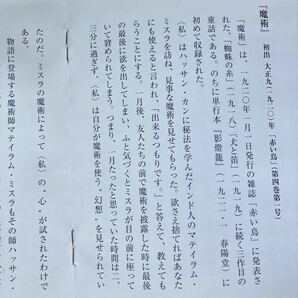 『魔術』 初出 大正九(一九二〇)年『赤い鳥』(第四巻第一号)
「魔術」は、一九二〇年一月一日発行の雑誌『赤い鳥』に発表さ
れた、「蜘蛛の糸」(一九一八)「犬と笛」(一九一九)に続く三作目の
童話である。のちに単行本『影燈籠』(一九二一・一 春陽堂)に
初めて収録された。
〈私〉はハッサン・カンに秘法を学んだインド人のマテイラム・
ミスラを訪ね、見事な魔術を見せてもらう。欲さえ捨てればあなた
にも使えると言われ、「出来るつもりです。」と答えて、教えても
らうことにする。一月後、友人たちの前で魔術を披露した時に最後
の最後に欲を出してしまい、ふと気づくとミスラが目の前に座って
いて窘められてしまう。つまり、一月たったと思っていた時間は二、
三分に過ぎず、〈私〉は自分が魔術を使う“幻想”を見せられてい
たのだ。ミスラの魔術によって〈私〉の“心”が試されたわけで
ある。
物語に登場する魔術師マテイラム・ミスラもその師ハッサン